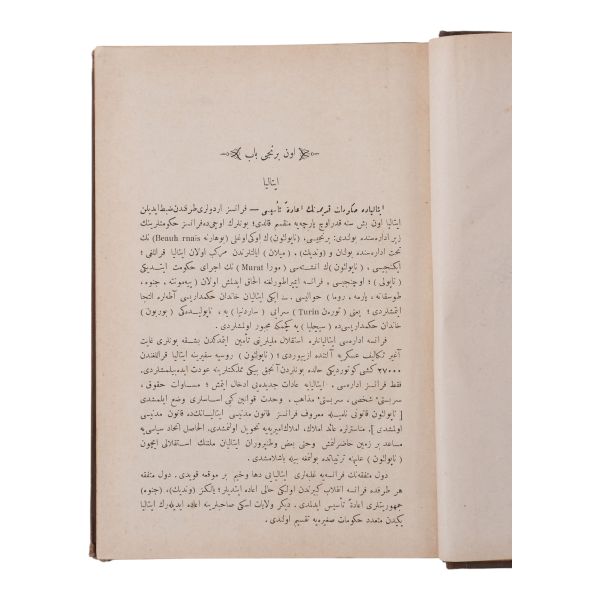 اون برنجی باب
ایتالیا
ایتالیاده حکومات قدیمه‌نك اعادهٔ تأسیسی — فرانسز اردولری طرفندن ضبط ایدیلن
ایتالیا اون بش سنه قدر اوچ پارچه‌یه منقسم قالدی؛ بونلرك اوچی‌ده فرانسز حکومتلرینك
زیر اداره‌سنده بولندی: برنجیسی، (ناپولئون)ك اوکی اوغلی (بوهارنه Beauh rnais) نك
تحت اداره‌سنده بولنان و (وندیك)، (میلان) ایالتلرندن مرکب اولان ایتالیا قراللغی؛
ایکنجیسی، (ناپولئون)ك انشته‌سی (مورا Murat) نك اجرای حکومت ایتدیکی
(ناپولی)؛ اوچنجیسی، فرانسه ایمپراطورلغنه الحاق ایدلمش اولان (پیه‌مونته، جنوه،
طوسقانه، پارمه، روما) حوالیسی. — ایکی ایتالیان خاندان حکمداریسی آطه‌لره التجا
ایتمشلردی؛ یعنی (تورن Turin) سرایی (ساردنیا) یه، ناپولیده‌کی (بوربون)
خاندان حکمداریسی‌ده (سیچلیا) یه کچمکه مجبور اولمشلردی.
فرانسه اداره‌سی ایتالیانلره استقلال ملیلرینی تأمین ایتمدکدن بشقه بونلری غایت
آغیر تکالیف عسکریه آلتنده ازییوردی؛ (ناپولئون) روسیه سفرینه ایتالیا قراللغندن
۲۷۰۰۰ کشی کوتوردیکی حالده بونلردن آنجق بیکی مملکتلرینه عودت ایده‌بیلمشلردی.
فقط فرانسز اداره‌سی، ایتالیایه عادات جدیده‌یی ادخال ایتمش؛ مساوات حقوق،
سربستیٔ شخصی، سربستیٔ مذاهب، وحدت قوانین کبی اساسلری وضع ایلمشدی
[ناپولئون قانونی نامیله معروف فرانسز قانون مدنیسی ایتالیانك‌ده قانون مدنیسی
اولمشدی]. مناسترلره عائد املاك، املاك امیریه‌یه تحویل اولنمشدی. الحاصل اتحاد سیاسی‌یه
مساعد بر زمین حاضرلانمش وحتی بعض وطنپروران ایتالیان ملتنك استقلالی ایچون
(ناپولئون) علیهنه ترتیباتده بولنمغه بیله باشلامشدی.
دول متفقه‌نك فرانسه‌یه غلبه‌لری ایتالیایی دها وخیم بر موقعه قویدی. دول متفقه
هر طرفده فرانسه انقلاب کبیرندن اولکی حالی اعاده ایتدیلر؛ یالکز (وندیك)، (جنوه)
جمهوریتلری اعادهٔ تأسیس ایدلمدی. دیکر ولایات اسکی صاحبلرینه اعاده ایدیله‌رك ایتالیا
یکیدن متعدد حکومات صغیره‌یه تقسیم اولندی.